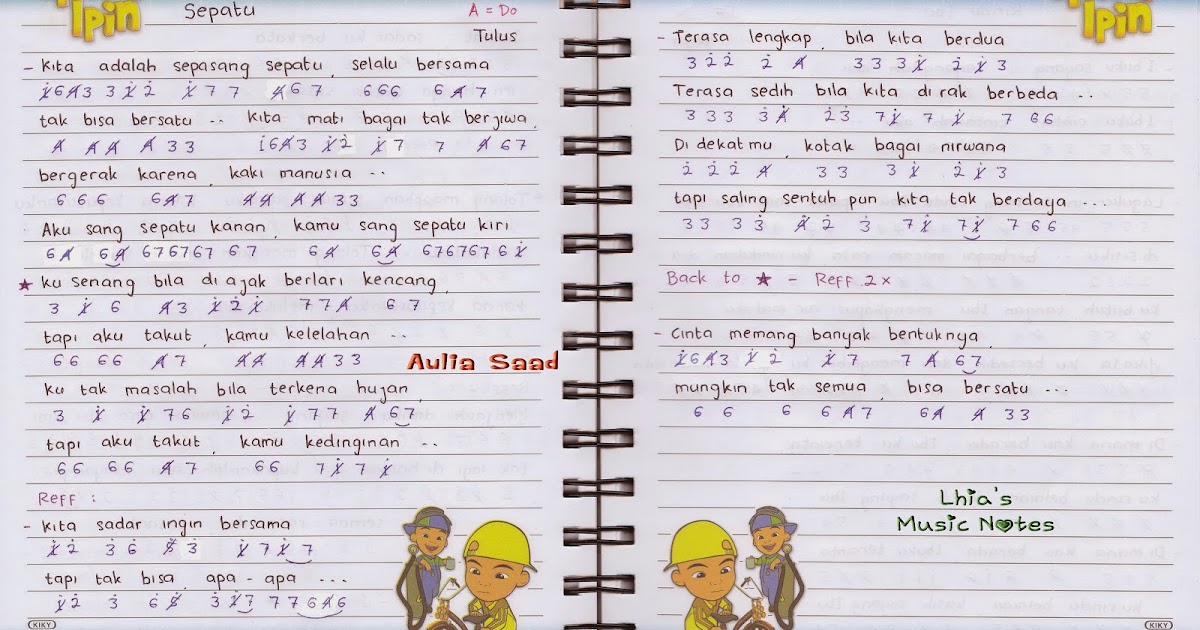 Ipin
Sepatu A = Do
Tulus
- Kita adalah sepasang sepatu, selalu bersama
1̸̇64̸3 31̸̇2̇ 1̸̇ 7 7 4̸67 666 64̸7
tak bisa bersatu .. kita mati bagai tak berjiwa,
4̸ 4̸4̸ 4̸ 3 3 1̇64̸3 1̸̇2̇ 1̸̇7 7 4̸67
bergerak karena, kaki manusia ..
6 6 6 64̸7 4̸4̸ 4̸4̸33
Aku sang sepatu kanan, kamu sang sepatu kiri
64̸ 64̸ 676767 67 64̸ 64̸ 676767 61̸̇
★ ku senang bila diajak berlari kencang,
3 1̸̇ 6 4̸3 1̸̇2̇1̸̇ 774̸ 67
tapi aku takut, kamu kelelahan ..
66 66 4̸7 4̸4̸ 4̸4̸33
Aulia Saad
ku tak masalah bila terkena hujan,
3 1̸̇ 1̸̇76 1̸̇2̇ 1̸̇77 4̸67
tapi aku takut, kamu kedinginan ..
66 66 4̸7 66 71̸̇71̸̇
Reff :
- kita sadar ingin bersama
1̸̇2̇ 36 5̸3̇ 1̸̇71̸̇7
tapi tak bisa, apa - apa ...
1̸̇2̇ 3 65̸ 31̸̇7 77646
KIKY
Ipin
- Terasa lengkap, bila kita berdua
32̇2̇ 2̇ 4̸ 33 31̸̇ 2̇1̸̇3
Terasa sedih bila kita di rak berbeda ...
333 3̇4̸ 2̇3 71̸̇ 7 1̸̇ 7 66
Di dekatmu, kotak bagai nirwana
2̇ 2̇2̇4̸ 33 31̸̇ 2̇1̸̇3
tapi saling sentuh pun kita tak berdaya ...
33 33̇ 4̸2̇ 3̇ 71̸̇ 71̸̇ 766
Back to ★ - Reff 2x
- Cinta memang banyak bentuknya,
1̸̇64̸3 1̸̇2̇ 1̸̇7 7 4̸67
mungkin tak semua, bisa bersatu ...
6 6 6 64̸7 64̸ 4̸33
Lhia's
Music Notes
KIKY